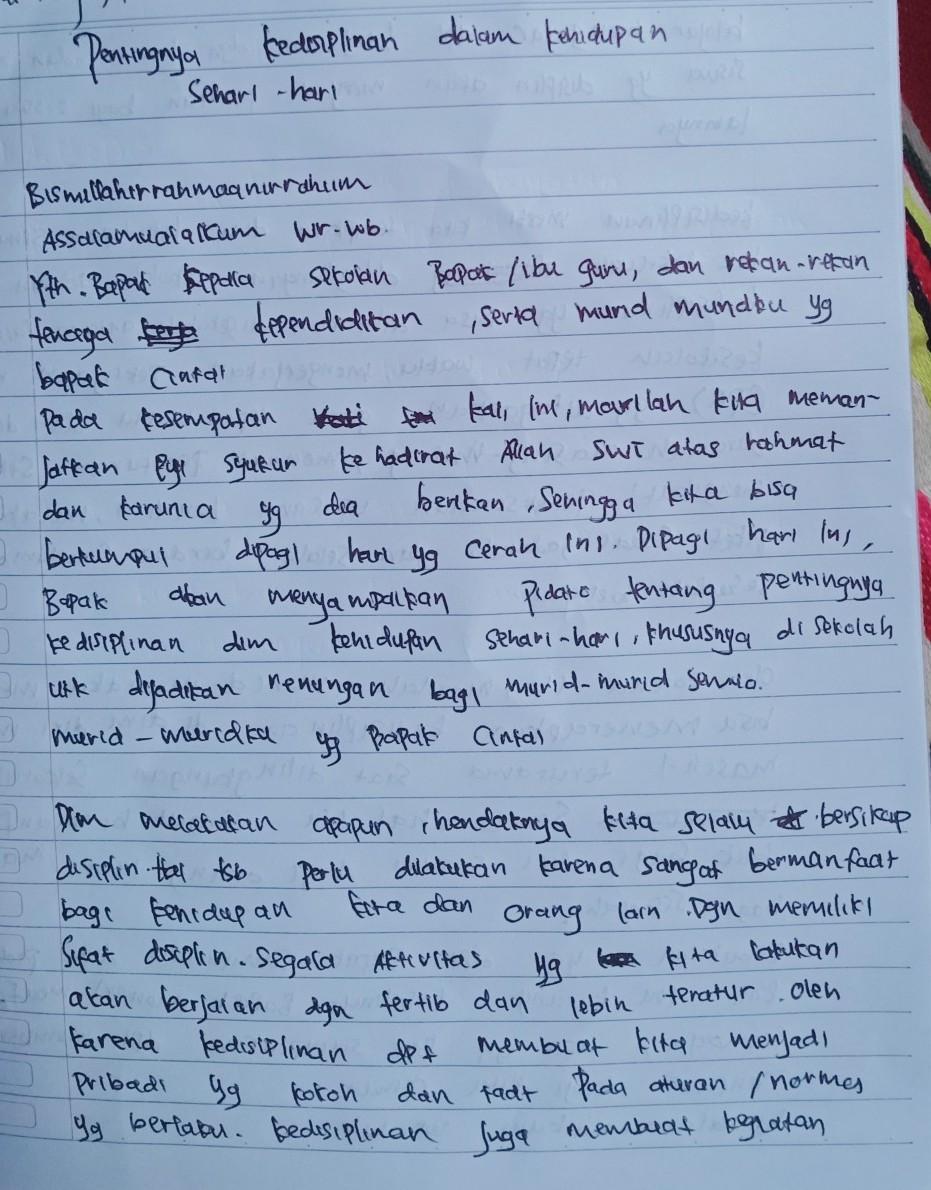 Pentingnya kedisiplinan dalam kehidupan
Sehari - hari
Bismillahirrahmaanirrahiim
Assalamualaikum wr. wb.
Yth. Bapak Kepala sekolah Bapak / ibu guru, dan rekan-rekan
tenaga kependidikan, serta murid muridku yg
bapak cintai
Pada kesempatan kali ini, marilah kita meman-
jatkan puji syukur ke hadirat Allah SWT atas rahmat
dan karunia yg dia berikan, Sehingga kita bisa
berkumpul dipagi hari yg cerah ini. Dipagi hari ini,
Bapak akan menyampaikan Pidato tentang pentingnya
kedisiplinan dlm kehidupan sehari-hari, khususnya di sekolah
utk dijadikan renungan bagi murid-murid semua.
murid - muridku yg Bapak Cintai
Dlm melakukan apapun, hendaknya kita selalu bersikap
disiplin. Hal tsb perlu dilakukan karena sangat bermanfaat
bagi kehidupan kita dan orang lain. Dgn memiliki
Sifat disiplin. segala Aktivitas yg kita lakukan
akan berjalan dgn tertib dan lebih teratur. oleh
karena kedisiplinan dpt membuat kita menjadi
pribadi yg kokoh dan taat Pada aturan / normes
yg berlaku. kedisiplinan juga membuat kegiatan